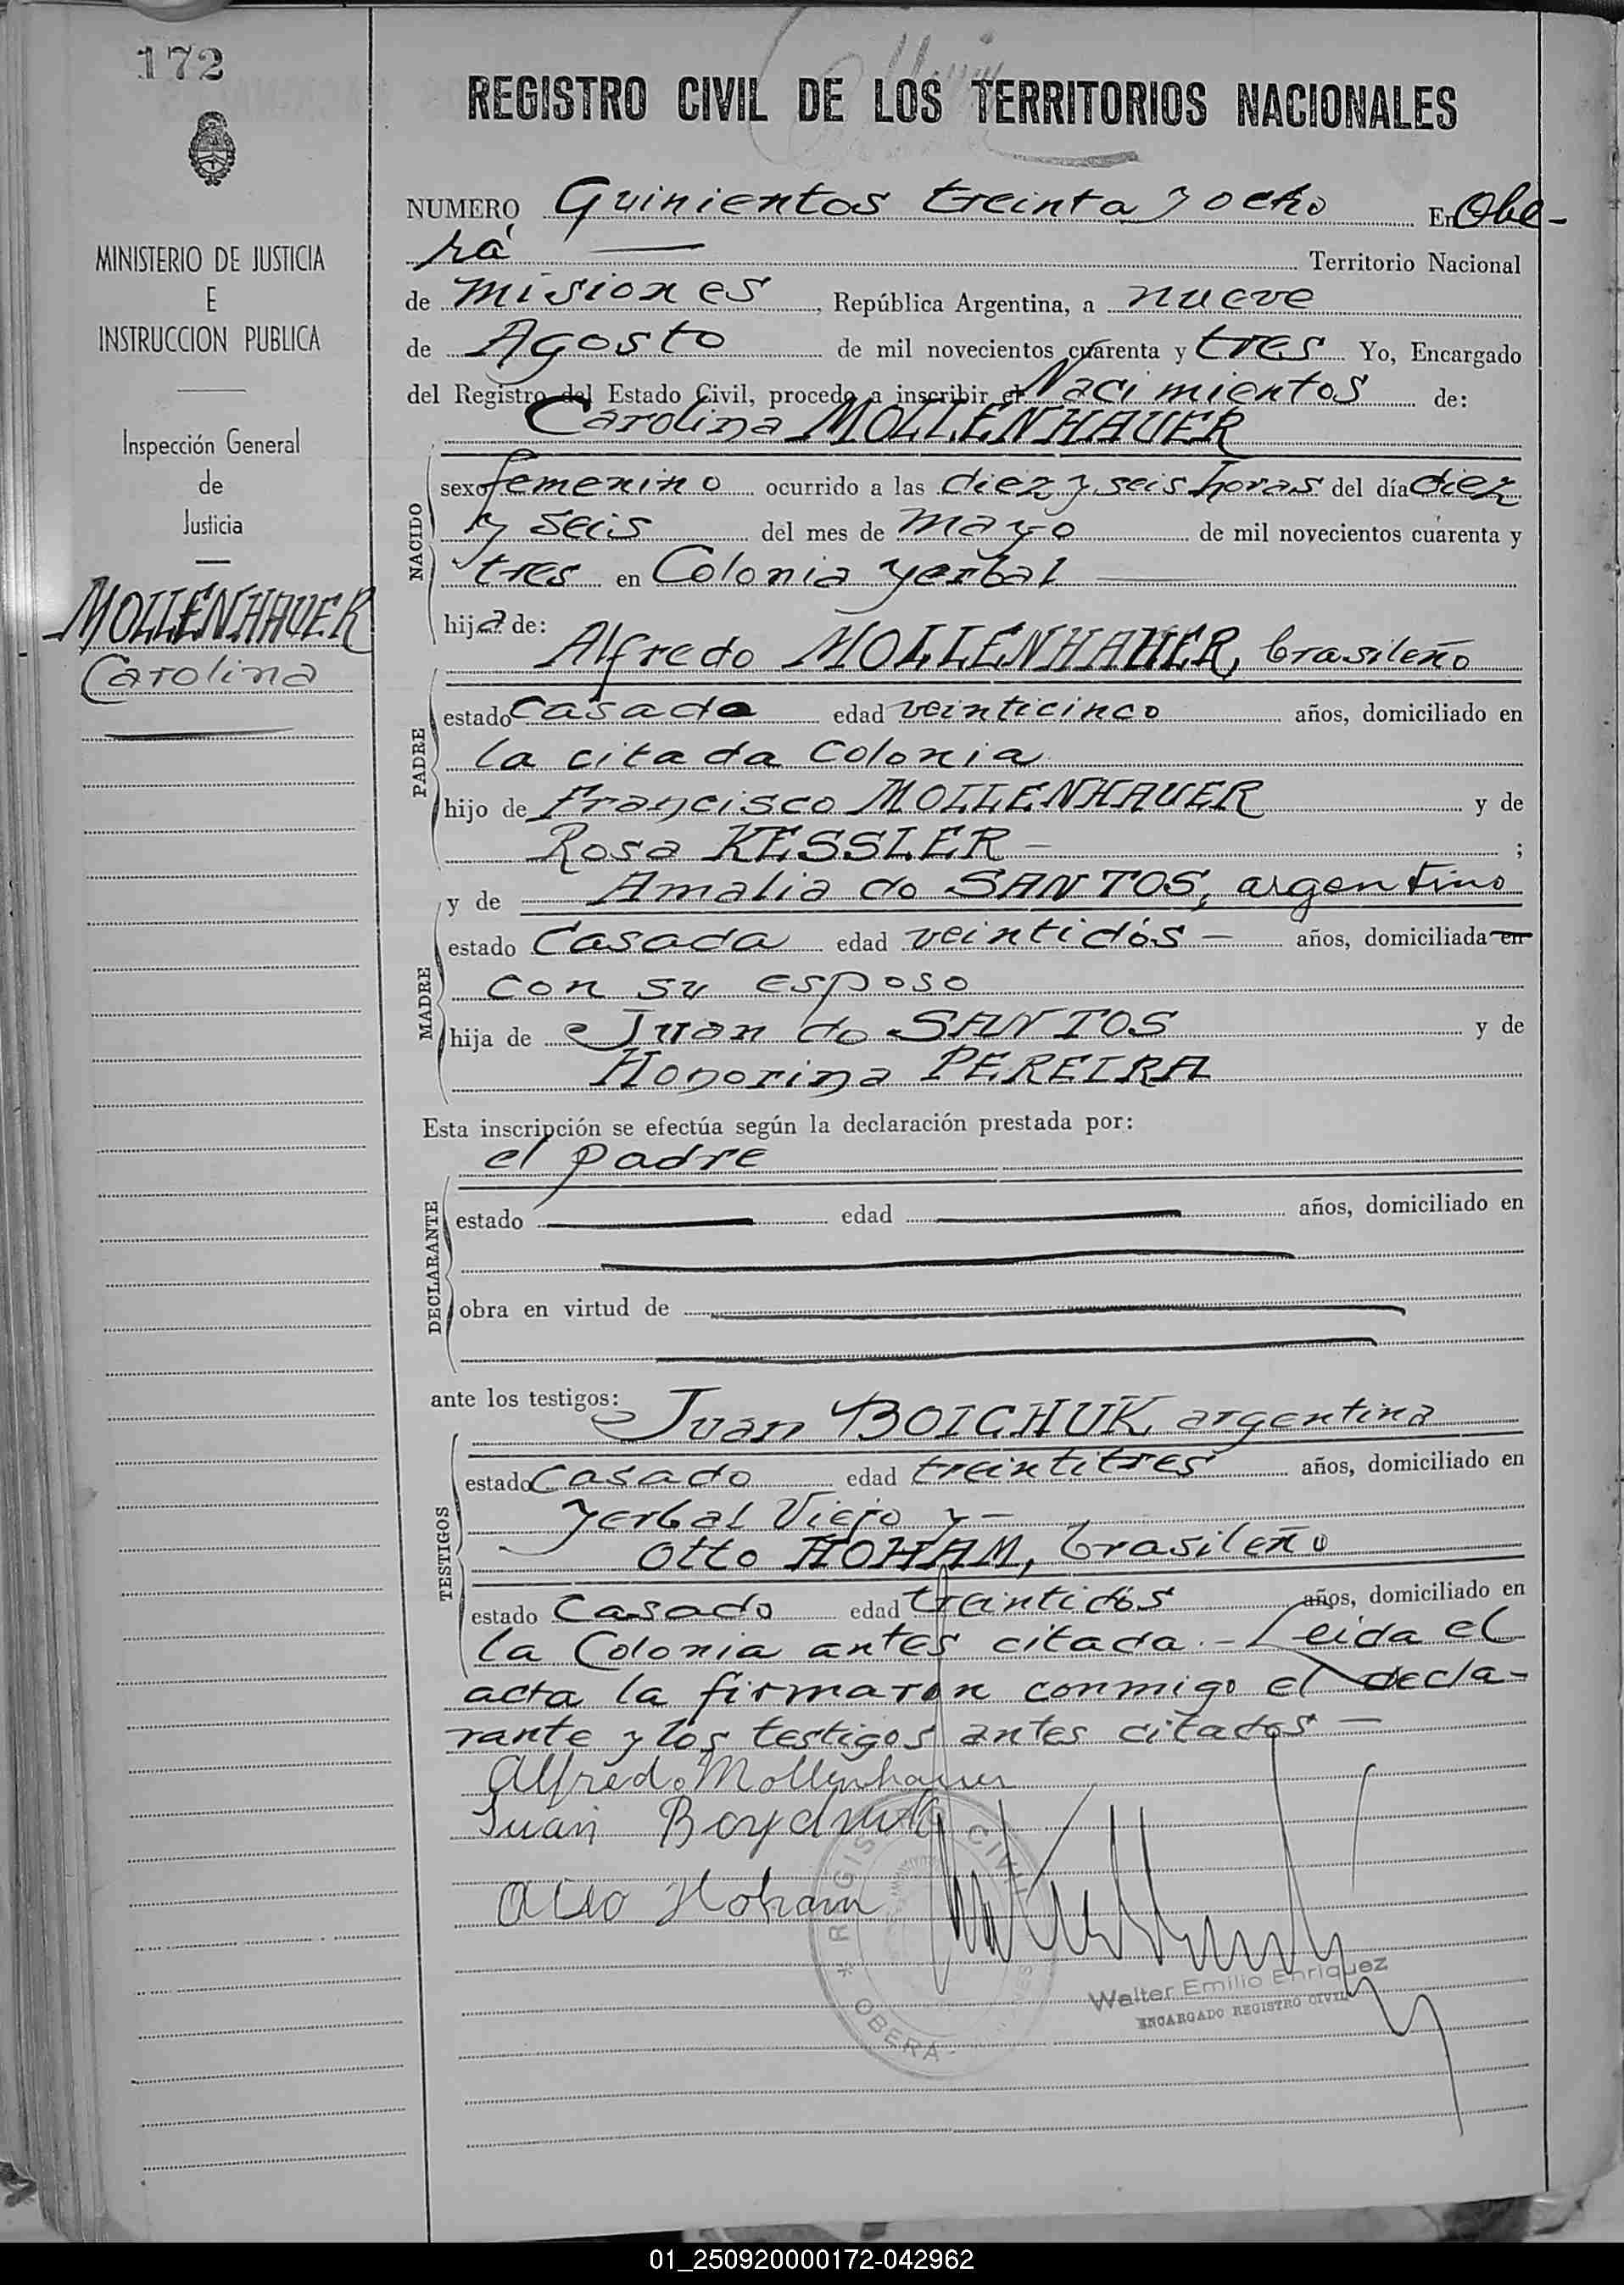 172
REGISTRO CIVIL DE LOS TERRITORIOS NACIONALES
MINISTERIO DE JUSTICIA
E
INSTRUCCION PUBLICA
Inspección General
de
Justicia
MOLLENHAUER
Carolina
NUMERO Quinientos treinta y ocho En Obe-
rá Territorio Nacional
de misiones, República Argentina, a nueve
de Agosto de mil novecientos cuarenta y tres Yo, Encargado
del Registro del Estado Civil, procedo a inscribir el Nacimientos de:
Carolina MOLLENHAUER
NACIDO
sexo femenino ocurrido a las diez y seis horas del día diez
y seis del mes de mayo de mil novecientos cuarenta y
tres en Colonia yerbal
hija de:
Alfredo MOLLENHAUER, brasileño
PADRE
estado Casado edad veinticinco años, domiciliado en
la citada Colonia
hijo de Francisco MOLLENHAUER y de
Rosa KESSLER - ;
y de Amalia do SANTOS, argentino
MADRE
estado Casada edad veintidós - años, domiciliada en
con su esposo
hija de Juan do SANTOS y de
Honorina PEREIRA
Esta inscripción se efectúa según la declaración prestada por:
el padre
DECLARANTE
estado edad años, domiciliado en
obra en virtud de
ante los testigos:
Juan BOICHUK, argentina
TESTIGOS
estado Casado edad treintitres años, domiciliado en
yerbal Viejo y -
Otto HOHAM, brasileño
estado Casado edad treintidós años, domiciliado en
la Colonia antes citada. - Leida el
acta la firmaron conmigo el decla-
rante y los testigos antes citados -
Alfredo Mollenhauer
Juan Boychuk
Otto Hoham
REGIS CIVIL
* OBERA -
Walter Emilio Enriquez
ENCARGADO REGISTRO CIVIL
01_250920000172-042962